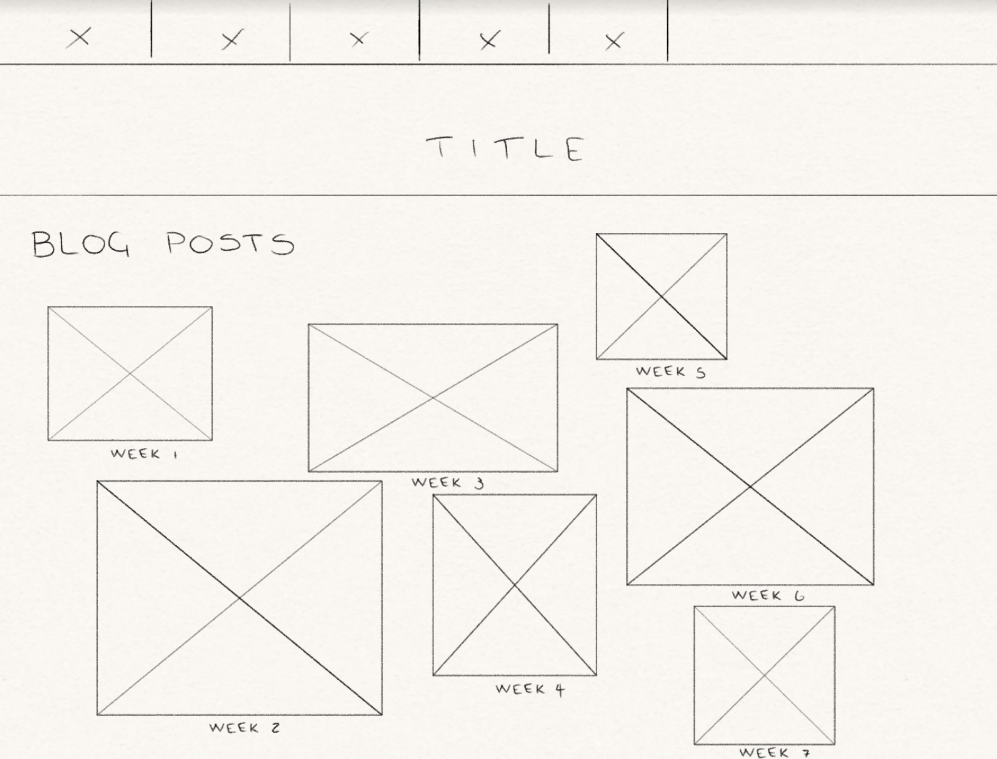 TITLE
BLOG POSTS
WEEK 1
WEEK 2
WEEK 3
WEEK 4
WEEK 5
WEEK 6
WEEK 7